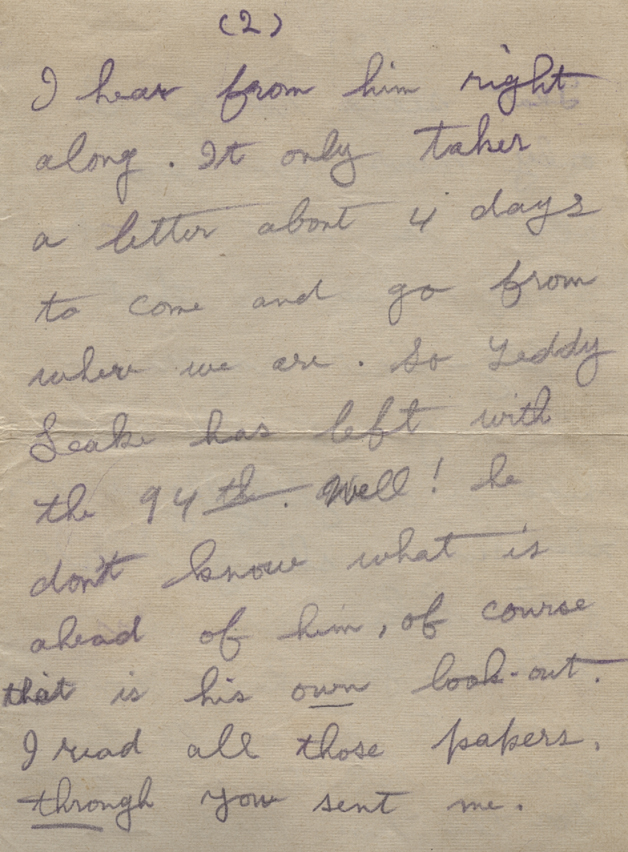 (2)
I hear from him right
along. It only takes
a letter about 4 days
to come and go from
where we are. So Teddy
Leake has left with
the 94th. Well! he
don't know what is
ahead of him, of course
that is his own look-out.
I read all those papers,
through you sent me.